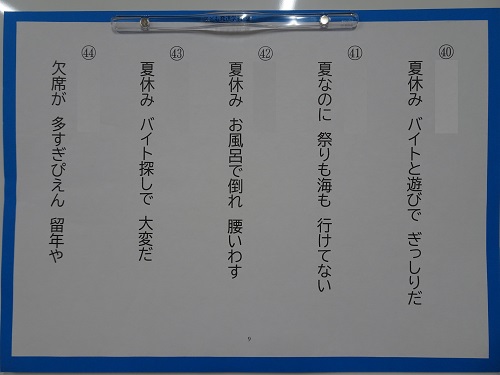 ㊵
夏休み バイトと遊びで ぎっしりだ
㊶
夏なのに 祭りも海も 行けてない
㊷
夏休み お風呂で倒れ 腰いわす
㊸
夏休み バイト探しで 大変だ
㊹
欠席が 多すぎぴえん 留年や
9